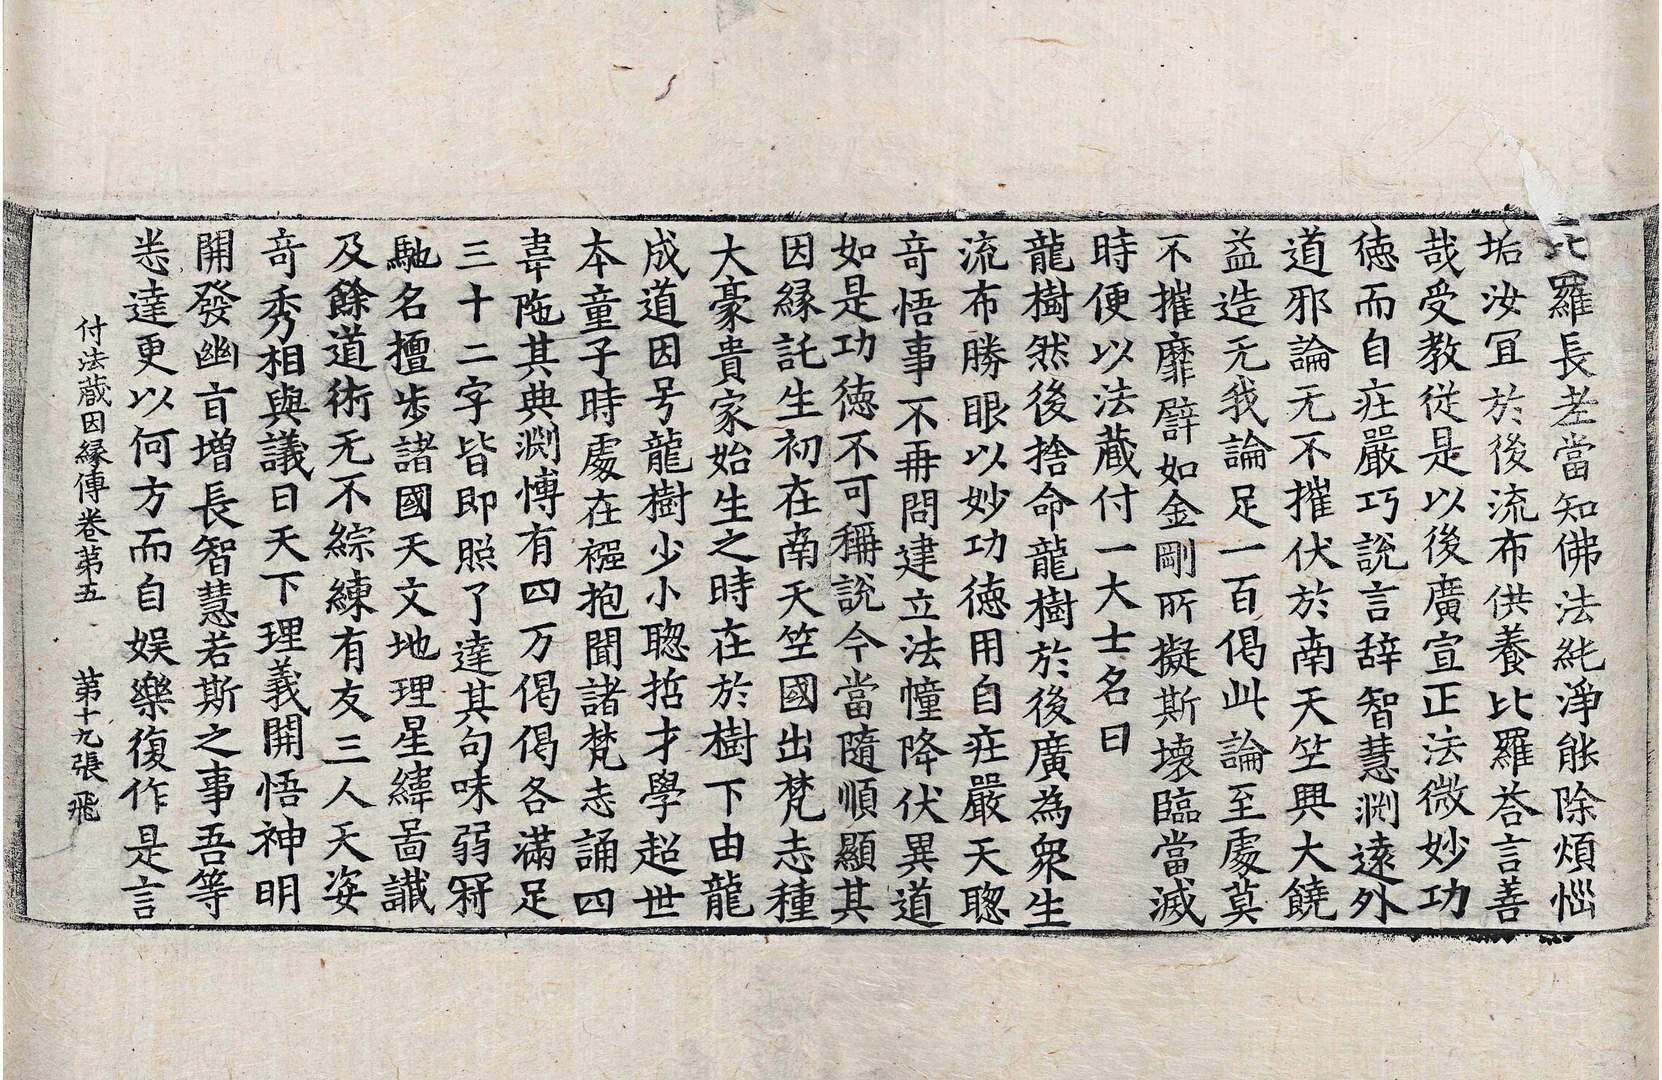 比羅長老當知佛法純淨能除煩惱
垢汝冝於後流布供養比羅荅言善
哉受教從是以後廣宣正法微妙功
德而自庄嚴巧說言辞智慧渊逺外
道邪論无不摧伏於南天竺興大饒
益造无我論足一百偈此論至處莫
不摧靡譬如金剛所擬斯壞臨當滅
時便以法藏付一大士名曰
龍樹然後捨命龍樹於後廣為衆生
流布勝眼以妙功德用自庄嚴天聦
竒悟事不再問建立法幢降伏異道
如是功德不可稱說今當隨順顯其
因縁託生初在南天竺國出梵志種
大豪貴家始生之時在於樹下由龍
成道因号龍樹少小聦哲才學超世
本童子時處在襁抱聞諸梵志誦四
韋陁其典渊愽有四万偈偈各滿足
三十二字皆即照了達其句味弱冠
馳名擅步諸國天文地理星緯啚讖
及餘道術无不綜練有友三人天姿
竒秀相與議曰天下理義開悟神明
開發幽旨增長智慧若斯之事吾等
悉達更以何方而自娛樂復作是言
付法藏因縁傳卷第五 第十九張 飛